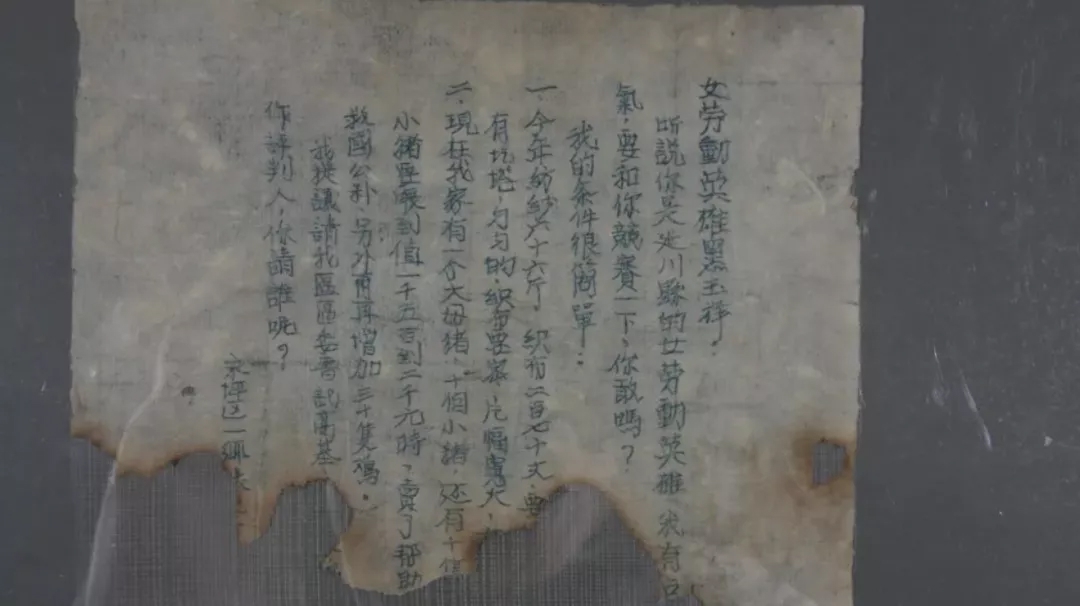 女劳動英雄黑玉祥：
听説你是延川縣的女劳動英雄
氣，要和你競賽一下、你敢嗎？
我的条件很簡單：
一、今年紡紗六十六斤，織布二百七十丈，要
有圪塔，匀匀的，織布要
二、現在我家有一个大母猪，十個小猪，还有十
小猪　到值一千五百到二千元時，賣了帮助
救國公粮、另外有再增加三十隻鴿。
我提議請我區區委書記高基
作評判人，你請誰呢？
区一鄉